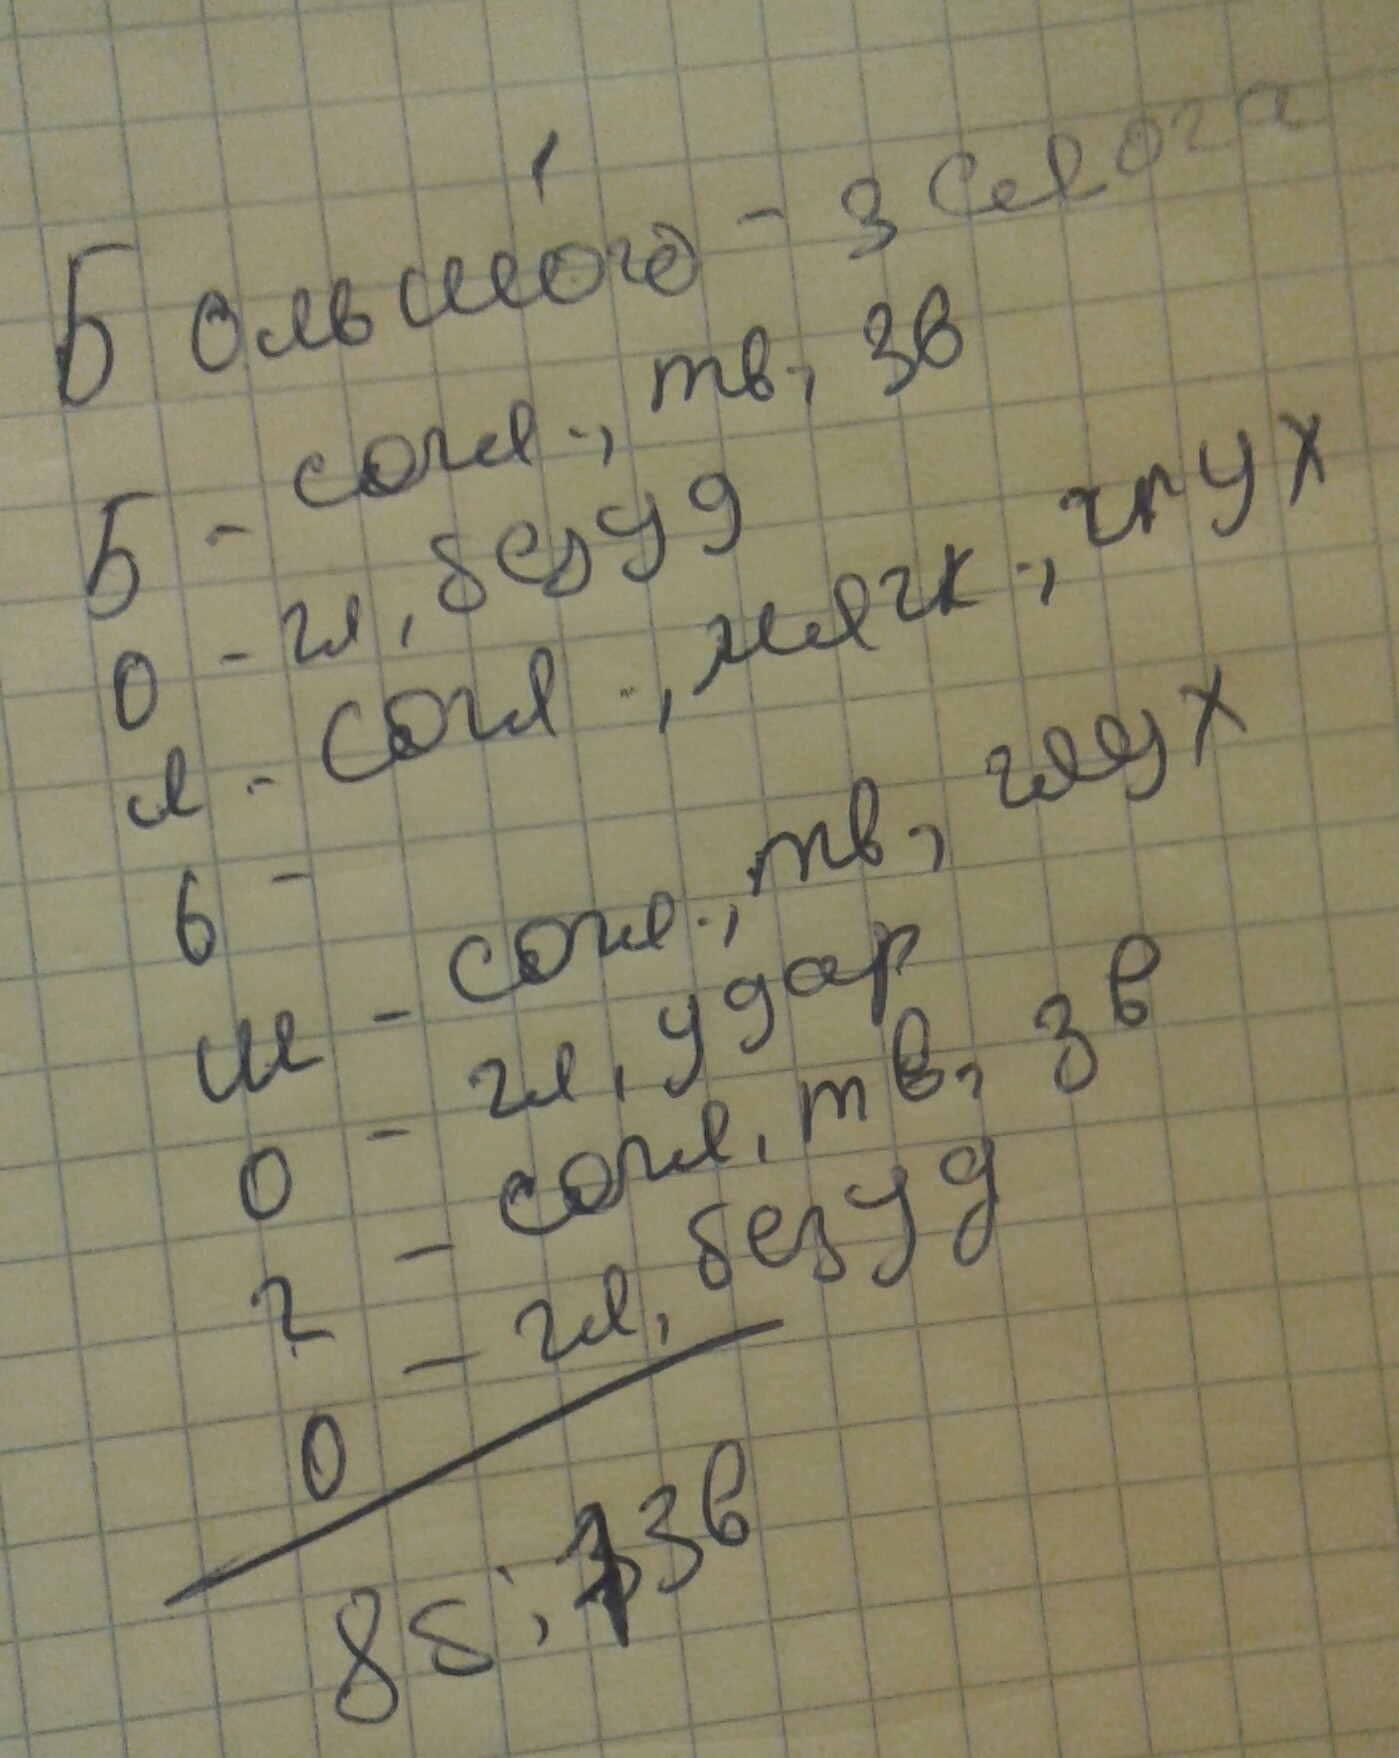 Большо́го - 3 слога
Б - согл., тв, зв
о - гл, безуд
л - согл., мягк., глух
ь -
ш - согл., тв, глух
о - гл, удар
г - согл, тв, зв
о - гл, безуд
8б; 7зв